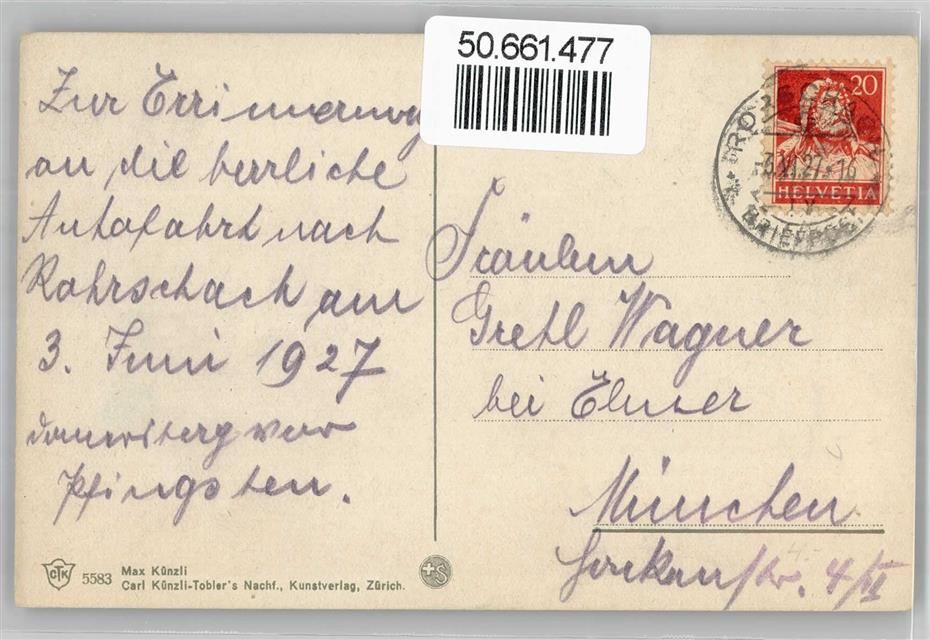 50.661.477
Zur Errinnerung
an die herrliche
Autofahrt nach
Rohrschach am
3. Juni 1927
vor
Pfingsten.
20
HELVETIA
BRIEFPOST
Fräulein
Gretl Wagner
bei
München
4/II
CTK 5583 Max Künzli
Carl Künzli-Tobler's Nachf., Kunstverlag, Zürich.
+S